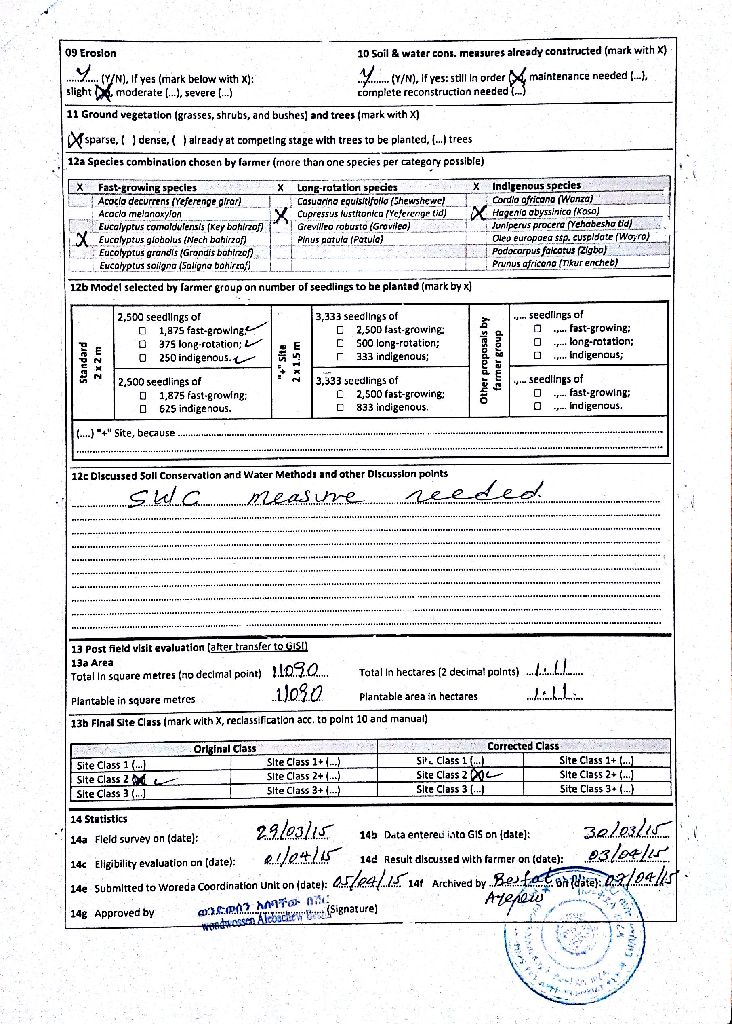 09 Erosion
10 Soil & water cons. measures already constructed (mark with X)
Y (Y/N), if yes (mark below with X):
Y (Y/N), if yes: still in order (X), maintenance needed (...),
slight (X), moderate (...), severe (...)
complete reconstruction needed (...)
11 Ground vegetation (grasses, shrubs, and bushes) and trees (mark with X)
(X) sparse, ( ) dense, ( ) already at competing stage with trees to be planted, (...) trees
12a Species combination chosen by farmer (more than one species per category possible)
X Fast-growing species X Long-rotation species X Indigenous species
Acacia decurrens (Yeferenge girar) Casuarina equisitifolia (Shewshewe) Cordia africana (Wanza)
Acacia melanoxylon X Cupressus lustitanica (Yeferenge tid) X Hagenia abyssinica (Koso)
Eucalyptus camaldulensis (Key bahirzaf) Grevillea robusta (Gravilea) Juniperus procera (Yehabesha tid)
X Eucalyptus globolus (Nech bahirzaf) Pinus patula (Patula) Oleo europaea ssp. cuspidate (Wayra)
Eucalyptus grandis (Grandis bahirzaf) Podocarpus falcatus (Zigba)
Eucalyptus saligna (Saligna bahirzaf) Prunus africana (Tikur encheb)
12b Model selected by farmer group on number of seedlings to be planted (mark by x)
Standard 2 x 2 m
2,500 seedlings of
☐ 1,875 fast-growing; ✓
☐ 375 long-rotation; ✓
☐ 250 indigenous. ✓
2,500 seedlings of
☐ 1,875 fast-growing;
☐ 625 indigenous.
"+" Site 2 x 1.5 m
3,333 seedlings of
☐ 2,500 fast-growing;
☐ 500 long-rotation;
☐ 333 indigenous;
3,333 seedlings of
☐ 2,500 fast-growing;
☐ 833 indigenous.
Other proposals by farmer group
.,... seedlings of
☐ .,... fast-growing;
☐ .,... long-rotation;
☐ .,... indigenous;
.,... seedlings of
☐ .,... fast-growing;
☐ .,... indigenous.
(....) "+" Site, because
12c Discussed Soil Conservation and Water Methods and other Discussion points
SWC measure needed.
13 Post field visit evaluation (after transfer to GIS!)
13a Area
Total in square metres (no decimal point) 11090 Total in hectares (2 decimal points) 1.11
Plantable in square metres 11090 Plantable area in hectares 1.11
13b Final Site Class (mark with X, reclassification acc. to point 10 and manual)
Original Class Corrected Class
Site Class 1 (...) Site Class 1+ (...) Site Class 1 (...) Site Class 1+ (...)
Site Class 2 (X) ✓ Site Class 2+ (...) Site Class 2 (X) ✓ Site Class 2+ (...)
Site Class 3 (...) Site Class 3+ (...) Site Class 3 (...) Site Class 3+ (...)
14 Statistics
14a Field survey on (date): 29/03/15 14b Data entered into GIS on (date): 30/03/15
14c Eligibility evaluation on (date): 01/04/15 14d Result discussed with farmer on (date): 03/04/15
14e Submitted to Woreda Coordination Unit on (date): 05/04/15 14f Archived by on (date): 07/04/15
14g Approved by (Signature)